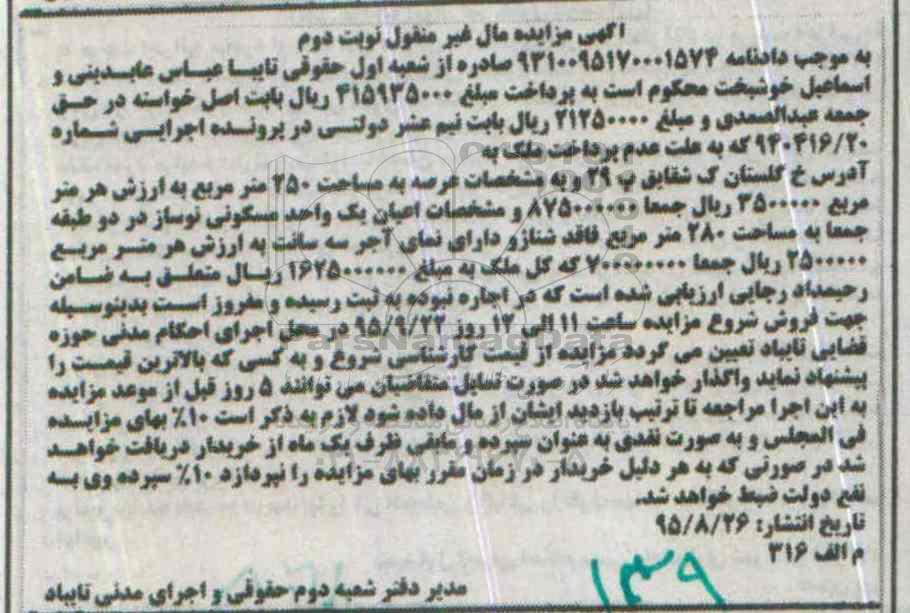 آگهی مزایده مال غیر منقول نوبت دوم
به موجب دادنامه ۹۳۱۰۰۹۵۱۷۰۰۰۱۵۷۴ صادره از شعبه اول حقوقی تایباد عباس عابدینی و
اسماعیل خوشبخت محکوم است به پرداخت مبلغ ۴۱۵۹۳۵۰۰۰ ریال بابت اصل خواسته در حق
جمعه عبدالصمدی و مبلغ ۲۱۲۵۰۰۰۰ ریال بابت نیم عشر دولتی در پرونده اجرایی شماره
۹۴۰۴۱۶/۲۰ که به علت عدم پرداخت ملک به
آدرس خ گلستان ک شقایق پ ۲۹ و به مشخصات عرصه به مساحت ۲۵۰ متر مربع به ارزش هر متر
مربع ۳۵۰۰۰۰۰ ریال جمعا ۸۷۵۰۰۰۰۰۰ و مشخصات اعیان یک واحد مسکونی نوساز در دو طبقه
جمعا به مساحت ۲۸۰ متر مربع فاقد شناژو دارای نمای آجر سه سانت به ارزش هر متر مربع
۲۵۰۰۰۰۰ ریال جمعا ۷۰۰۰۰۰۰۰۰ که کل ملک به مبلغ ۱۶۲۵۰۰۰۰۰۰ ریال متعلق به ضامن
رحیمداد رجایی ارزیابی شده است که در اجاره نبوده به ثبت رسیده و مفروز است بدینوسیله
جهت فروش شروع مزایده ساعت ۱۱ الی ۱۲ روز ۹۵/۹/۲۲ در محل اجرای احکام مدنی حوزه
قضایی تایباد تعیین می گردد مزایده از قیمت کارشناسی شروع و به کسی که بالاترین قیمت را
پیشنهاد نماید واگذار خواهد شد در صورت تمایل متقاضیان می توانند ۵ روز قبل از موعد مزایده
به این اجرا مراجعه تا ترتیب بازدید ایشان از مال داده شود لازم به ذکر است ۱۰٪ بهای مزایده
فی المجلس و به صورت نقدی به عنوان سپرده و مابقی ظرف یک ماه از خریدار دریافت خواهد
شد در صورتی که به هر دلیل خریدار در زمان مقرر بهای مزایده را نپردازد ۱۰٪ سپرده وی به
نفع دولت ضبط خواهد شد.
تاریخ انتشار: ۹۵/۸/۲۶
م الف ۳۱۶
مدیر دفتر شعبه دوم حقوقی و اجرای مدنی تایباد
۱۳۳۹
ParsNamadData